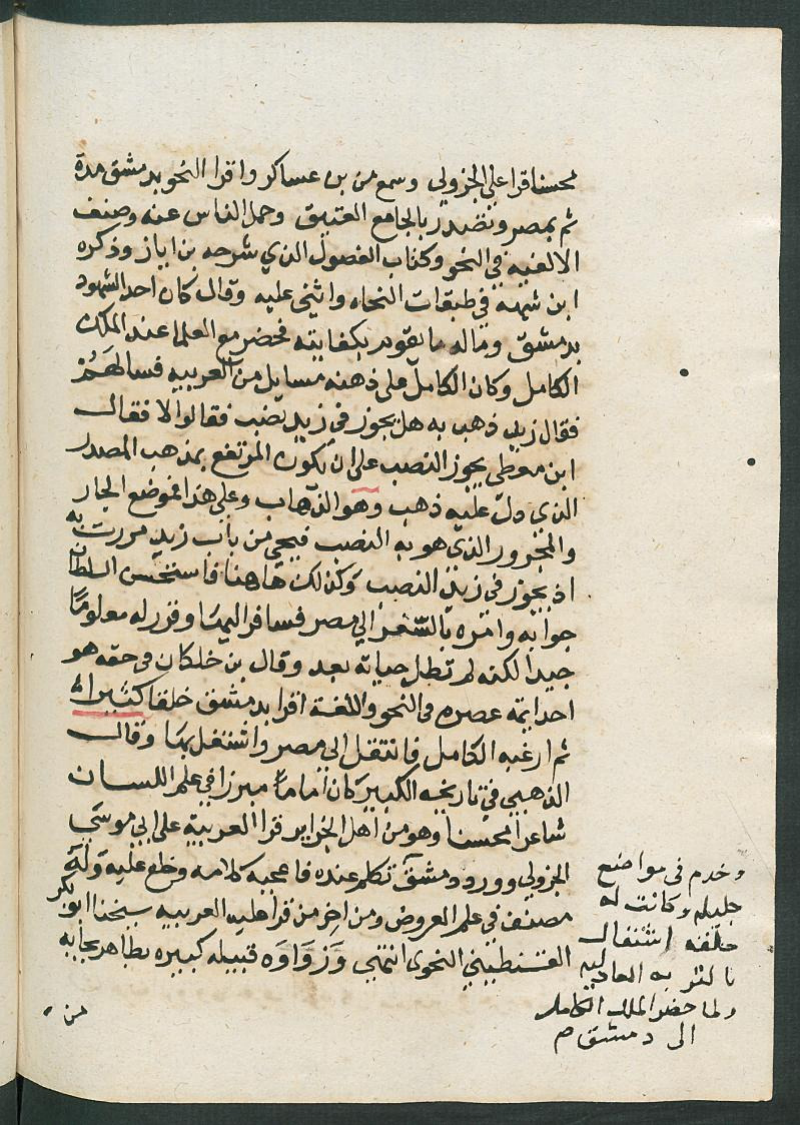 محسنا قرا على الجزولي وسمع من بن عساكر واقرا النحو بدمشق مدة
ثم بمصر وتصدر بالجامع العتيق وحمل الناس عنه وصنف
الالفيه في النحو وكتاب الفصول الذي شرحه بن اياز وذكره
ابن شهبه في طبقات النحاه واثنى عليه وقال كان احد الشهود
بدمشق وماله ما يقوم بكفايته فحضر مع العلما عند الملك
الكامل وكان الكامل على ذهنه مسايل من العربيه فسالهم
فقال زيد ذهب به هل يجوز في زيد نصب فقالوا لا فقال
ابن معطي يجوز النصب على ان يكون المرتفع بمذهب المصدر
الذي دل عليه ذهب وهو الذهاب وعلى هذا فموضع الجار
والمجرور الذي هو به النصب فيجي من باب زيد مررت به
اذ يجوز في زيد النصب وكذلك هاهنا فاستحسن السلطان
جوابه وامره بالسفر الي مصر فسافر اليها وقرر له معلوما
جيدا لكنه لم تطل حياته بعد وقال بن خلكان في حقه هو
احد ايمة عصره في النحو واللغة اقرا بدمشق خلقا كثيرا
ثم ارغبه الكامل فانتقل الي مصر واشتغل بها وقال
الذهبي في تاريخه الكبير كان اماما مبرزا في علم اللسان
شاعرا محسنا وهو من اهل الجزاير قرا العربية على ابي موسي
الجزولي وورود دمشق تكلم عنده فاعجبه كلامه وخلع عليه وله
مصنف في علم العروض ومن اخر من قرا عليه العربيه شيخنا ابو بكر
القسنطيني النحوى انتهي وزواوه قبيله كبيره بظاهر بجايه
من
وخدم في مواضع
جليله وكانت له
حلقه اشتغال
بالتربه العادليه
ولما حضر الملك الكامل
الى دمشق م